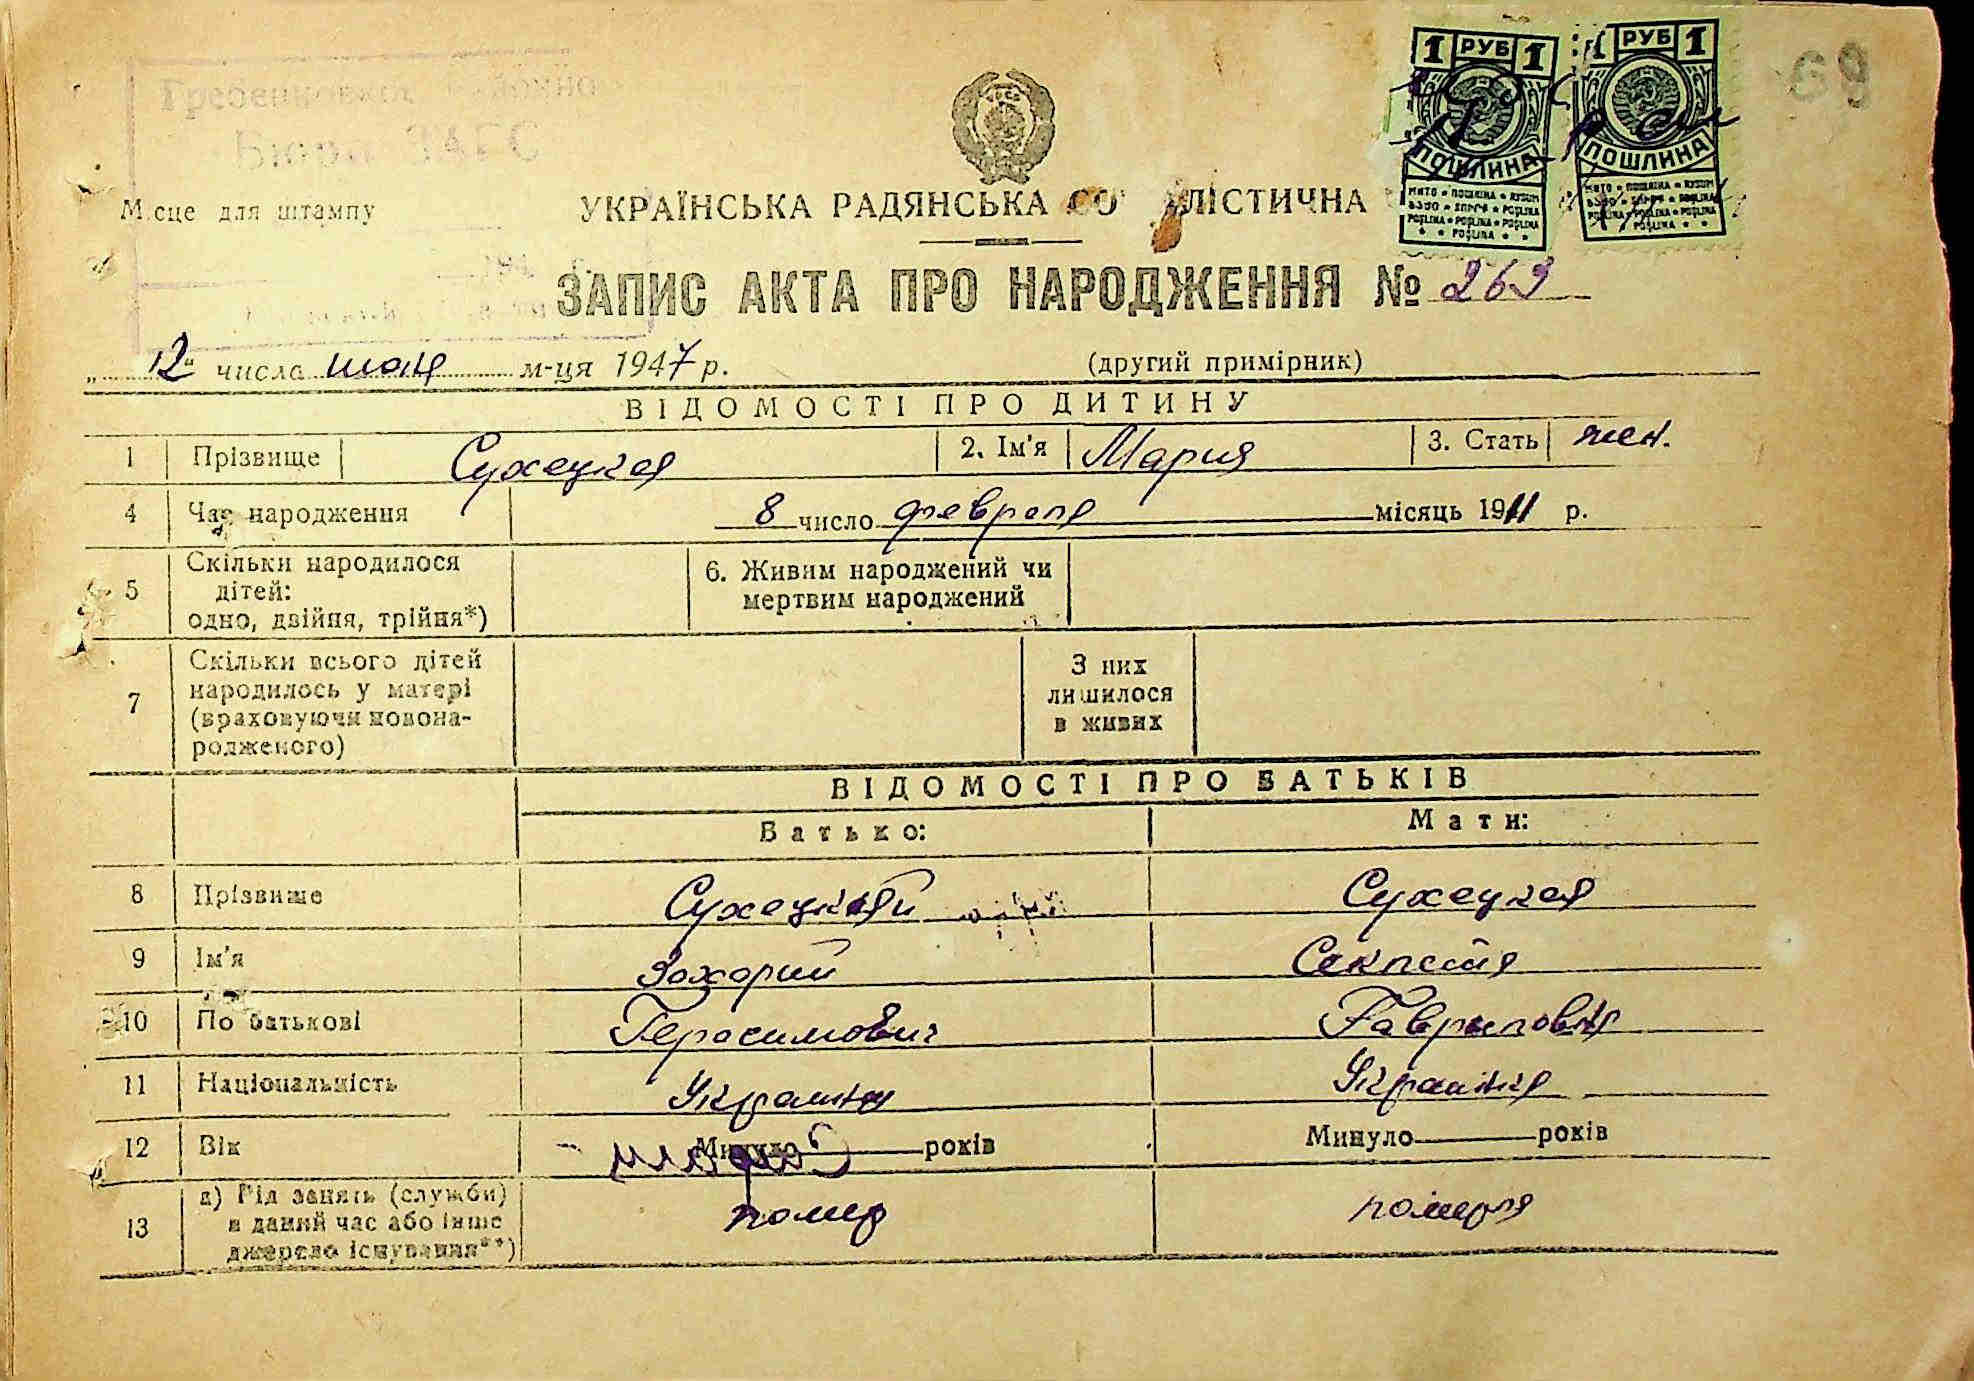 69
1 РУБ 1
1 РУБ 1
ПОШЛИНА
ПОШЛИНА
Гребенковское районно
Бюро ЗАГС
Місце для штампу
УКРАЇНСЬКА РАДЯНСЬКА СО ЛІСТИЧНА
ЗАПИС АКТА ПРО НАРОДЖЕННЯ № 263
„12“ числа мая м-ця 1947 р. (другий примірник)
ВІДОМОСТІ ПРО ДИТИНУ
1 Прізвище Сухецкая 2. Ім'я Мария 3. Стать жен.
4 Час народження 8 число февраля місяць 1911 р.
5 Скільки народилося дітей: одно, двійня, трійня*) 6. Живим народжений чи мертвим народжений
7 Скільки всього дітей народилось у матері (враховуючи новонародженого) З них лишилося в живих
ВІДОМОСТІ ПРО БАТЬКІВ
Батько: Мати:
8 Прізвище Сухецкий Сухецкая
9 Ім'я Захарий Секлетия
10 По батькові Герасимович Гавриловна
11 Національність Украинец Украинка
12 Вік Минуло років Минуло років
13 а) Рід занять (служби) в даний час або інше джерело існування**) помер померла